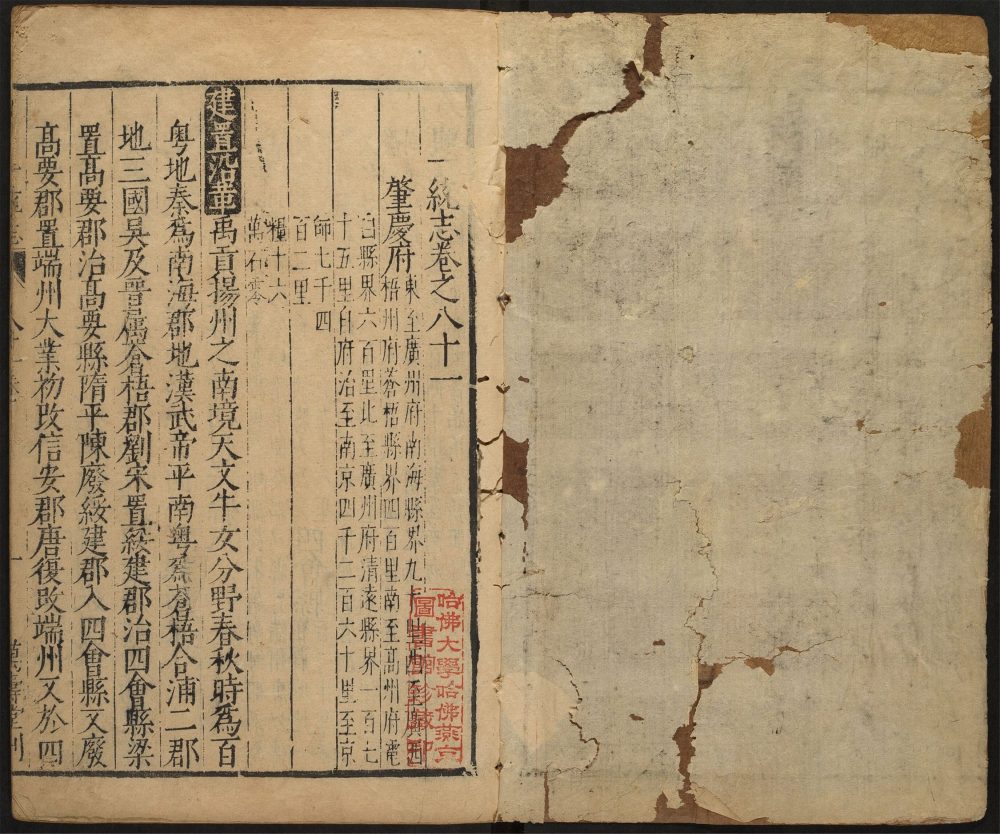 一統志卷之八十一
肇慶府
東至廣州府南海縣界九十里西至廣西
梧州府蒼梧縣界四百里南至高州府電
白縣界六百里北至廣州府清遠縣界一百七
十五里自府治至南京四千二百六十里至京
師七千四
百二里
糧十六
萬石零
建置沿革禹貢揚州之南境天文牛女分野春秋時爲百
粤地秦爲南海郡地漢武帝平南粤爲蒼梧合浦二郡
地三國吳及晉屬蒼梧郡劉宋置綏建郡治四會縣梁
置髙要郡治髙要縣隋平陳廢綏建郡入四會縣又廢
髙要郡置端州大業初改信安郡唐復改端州又於四
哈佛大學哈佛燕京
圖書館珍藏印